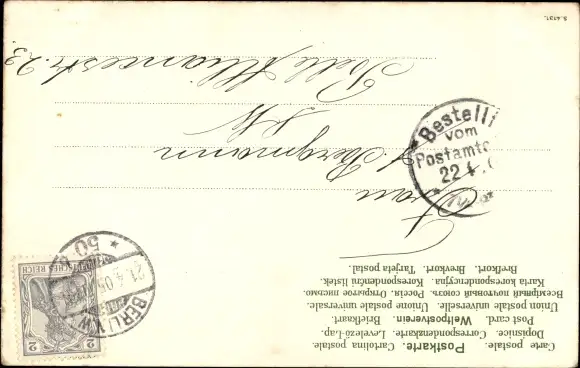 Carte postale. Postkarte. Cartolina postale.
Dopisnice. Correspondenzkarte. Levelező-Lap.
Post card. Weltpostverein. Briefkaart.
Union postale universelle. Unione postale universale.
Всемірный почтовый союзъ. Россія. Открытое письмо.
Karta korespondencyjna. Korespondenční lístek.
Bredkort. Brevkort. Tarjeta postal.
Frau
Bergmann
SW
Belle Alliancestr. 23.
Bestellt
vom
Postamte
22 4.
BERLIN.W
21.4.05
50
DEUTSCHES REICH
2
2
S. 4131.